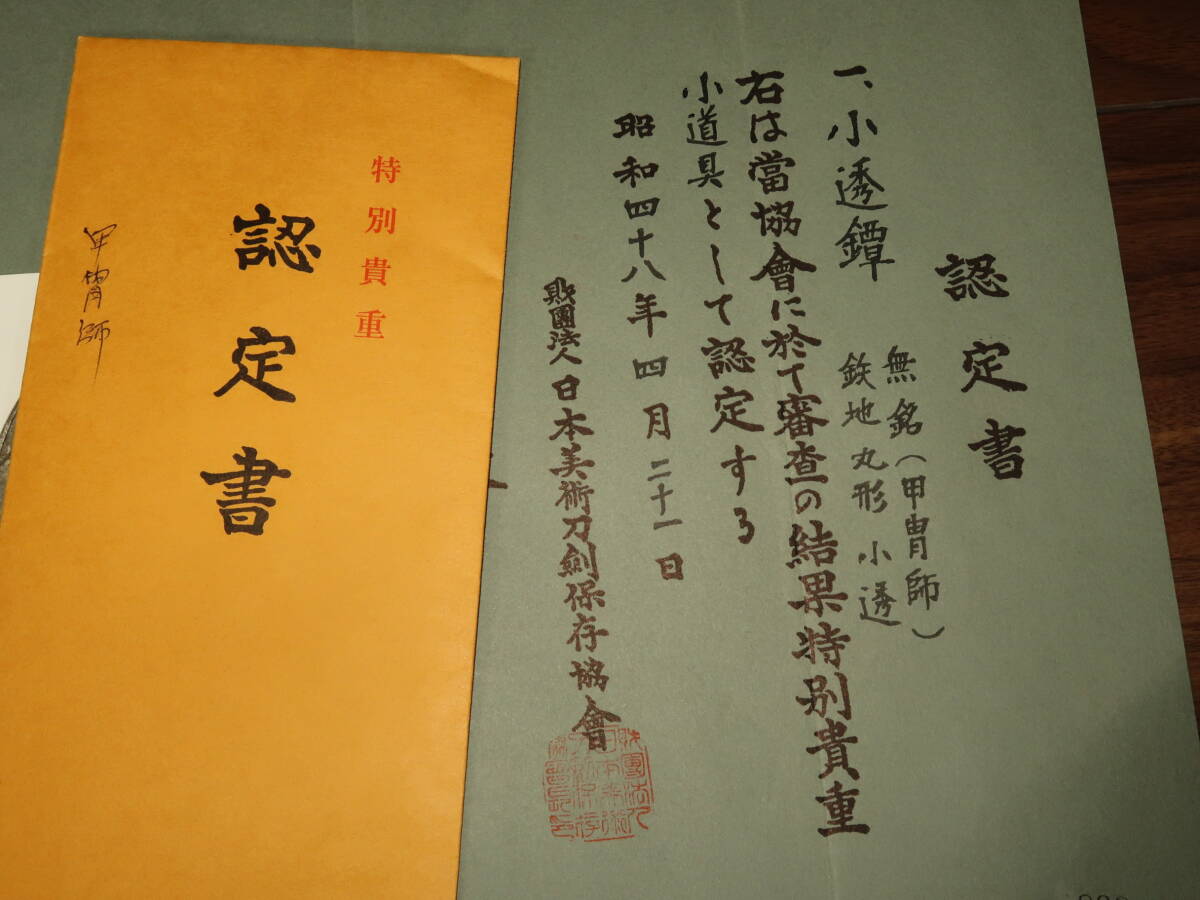 認定書
一、小透鐔
無銘(甲冑師)
鉄地丸形 小透
右は當協會に於て審査の結果特別貴重
小道具として認定する
昭和四十八年四月二十一日
財團法人日本美術刀劍保存協會
特別貴重
認定書
甲冑師